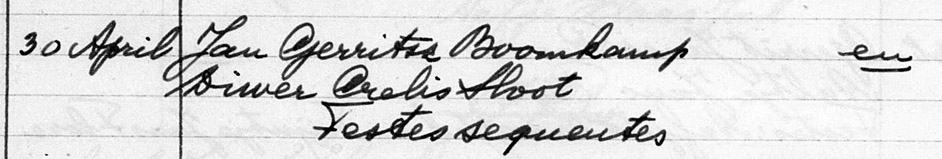 30 April Jan Gerritsz Boomkamp en
Diwer Crelis Sloot
Testes sequentes